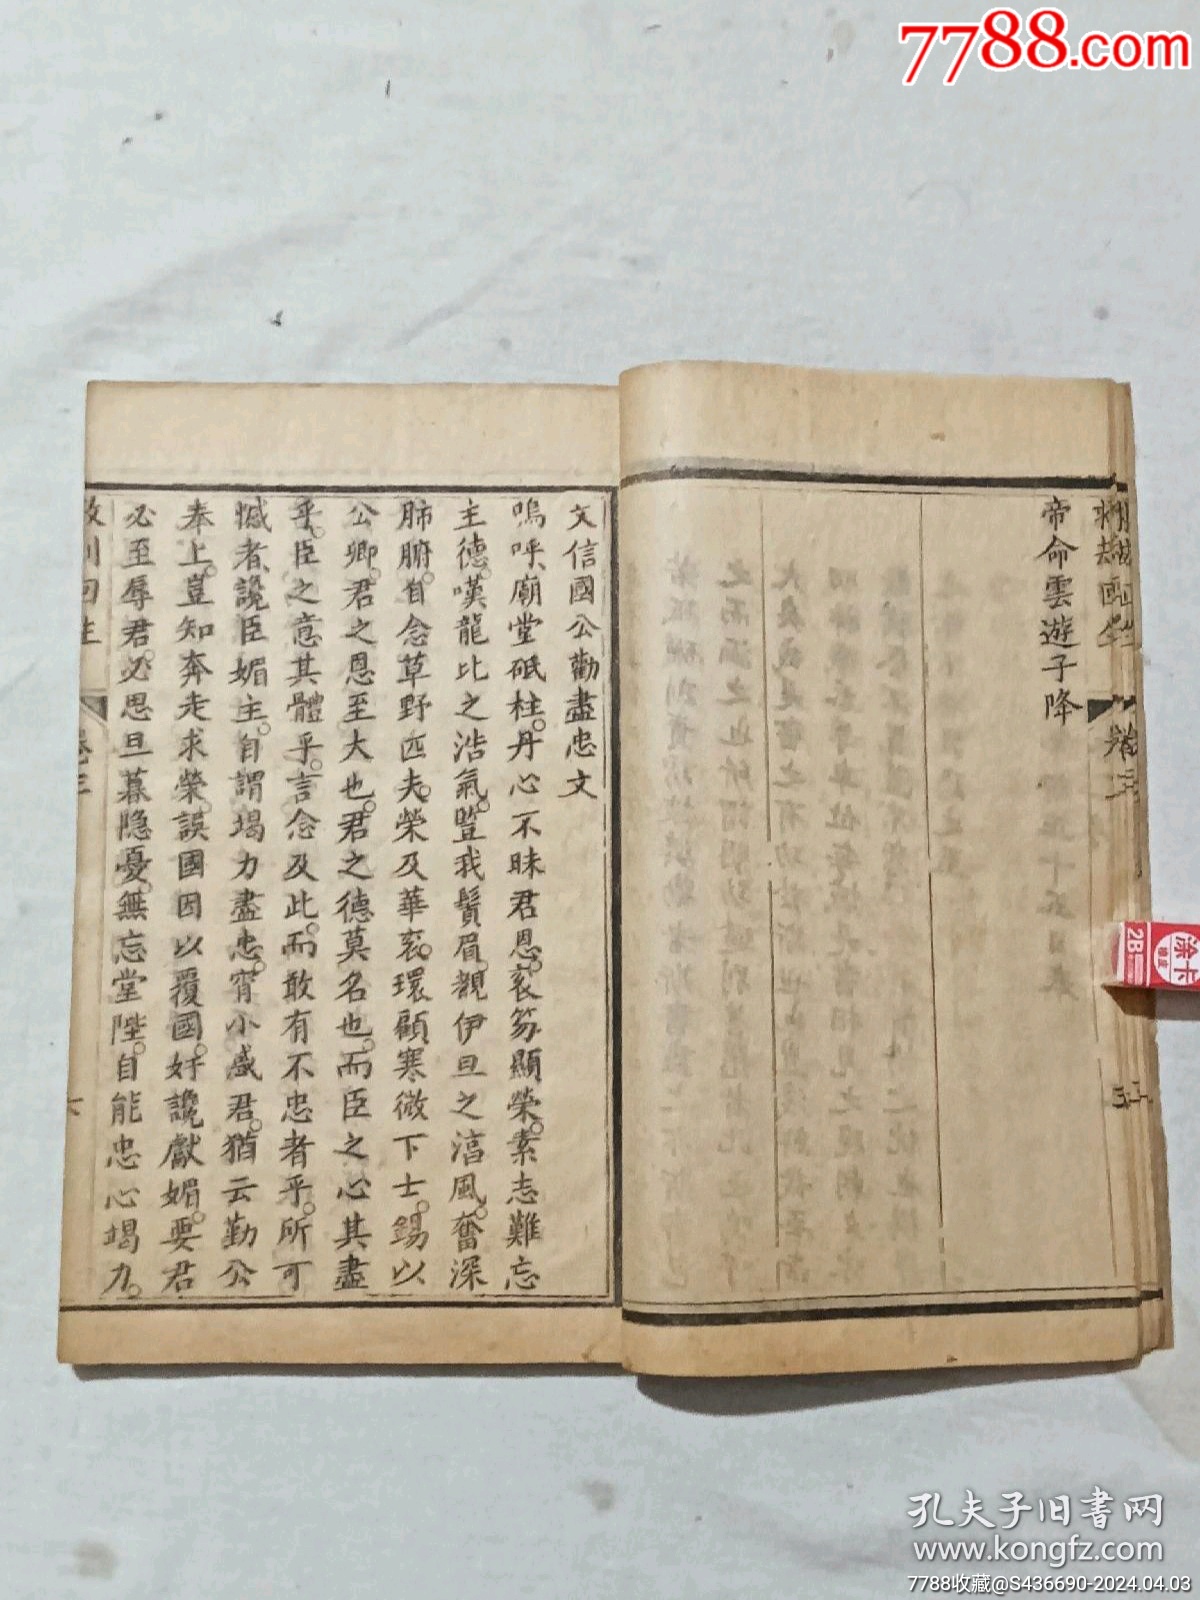 7788.com
帝命雲遊子降
卷三
文信國公勸盡忠文
嗚呼廟堂砥柱丹心不昧君恩衮笏顯榮素志難忘
主德嘆龍比之浩氣豈我鬢眉覩伊旦之高風奮深
肺腑自念草野匹夫榮及華衮環顧寒微下士錫以
公卿君之恩至大也君之德莫名也而臣之心其盡
乎臣之意其體乎言念及此而敢有不忠者乎所可
憾者讒臣媚主自謂竭力盡忠宵小惑君猶云勤公
奉上豈知奔走求榮誤國因以覆國奸讒獻媚要君
必至辱君必思旦暮隐憂無忘堂陛自能忠心竭力
救刦回生
卷三
六
2B
涂卡
橡皮
孔夫子旧书网
www.kongfz.com
7788收藏@S436690-2024.04.03